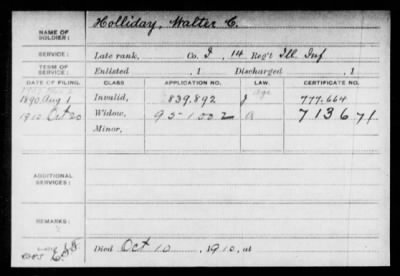 NAME OF SOLDIER: Holliday, Walter C.
SERVICE: Late rank, Co. I, 14 Reg't Ill Inf
TERM OF SERVICE: Enlisted , 1 Discharged , 1
DATE OF FILING. CLASS APPLICATION NO. CERTIFICATE NO.
1890 Aug 1 Invalid, 839.892 777.664
1910 Oct 20 Widow, 95-1002 713671
Minor,
ADDITIONAL SERVICES:
REMARKS:
Died Oct 10, 1910, at